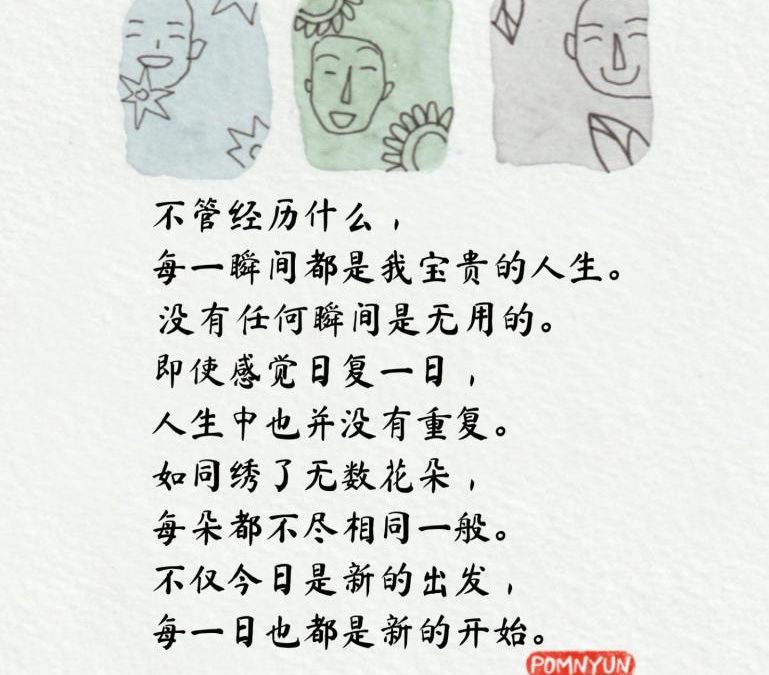 不管经历什么，
每一瞬间都是我宝贵的人生。
没有任何瞬间是无用的。
即使感觉日复一日，
人生中也并没有重复。
如同绣了无数花朵，
每朵都不尽相同一般。
不仅今日是新的出发，
每一日也都是新的开始。
POMNYUN